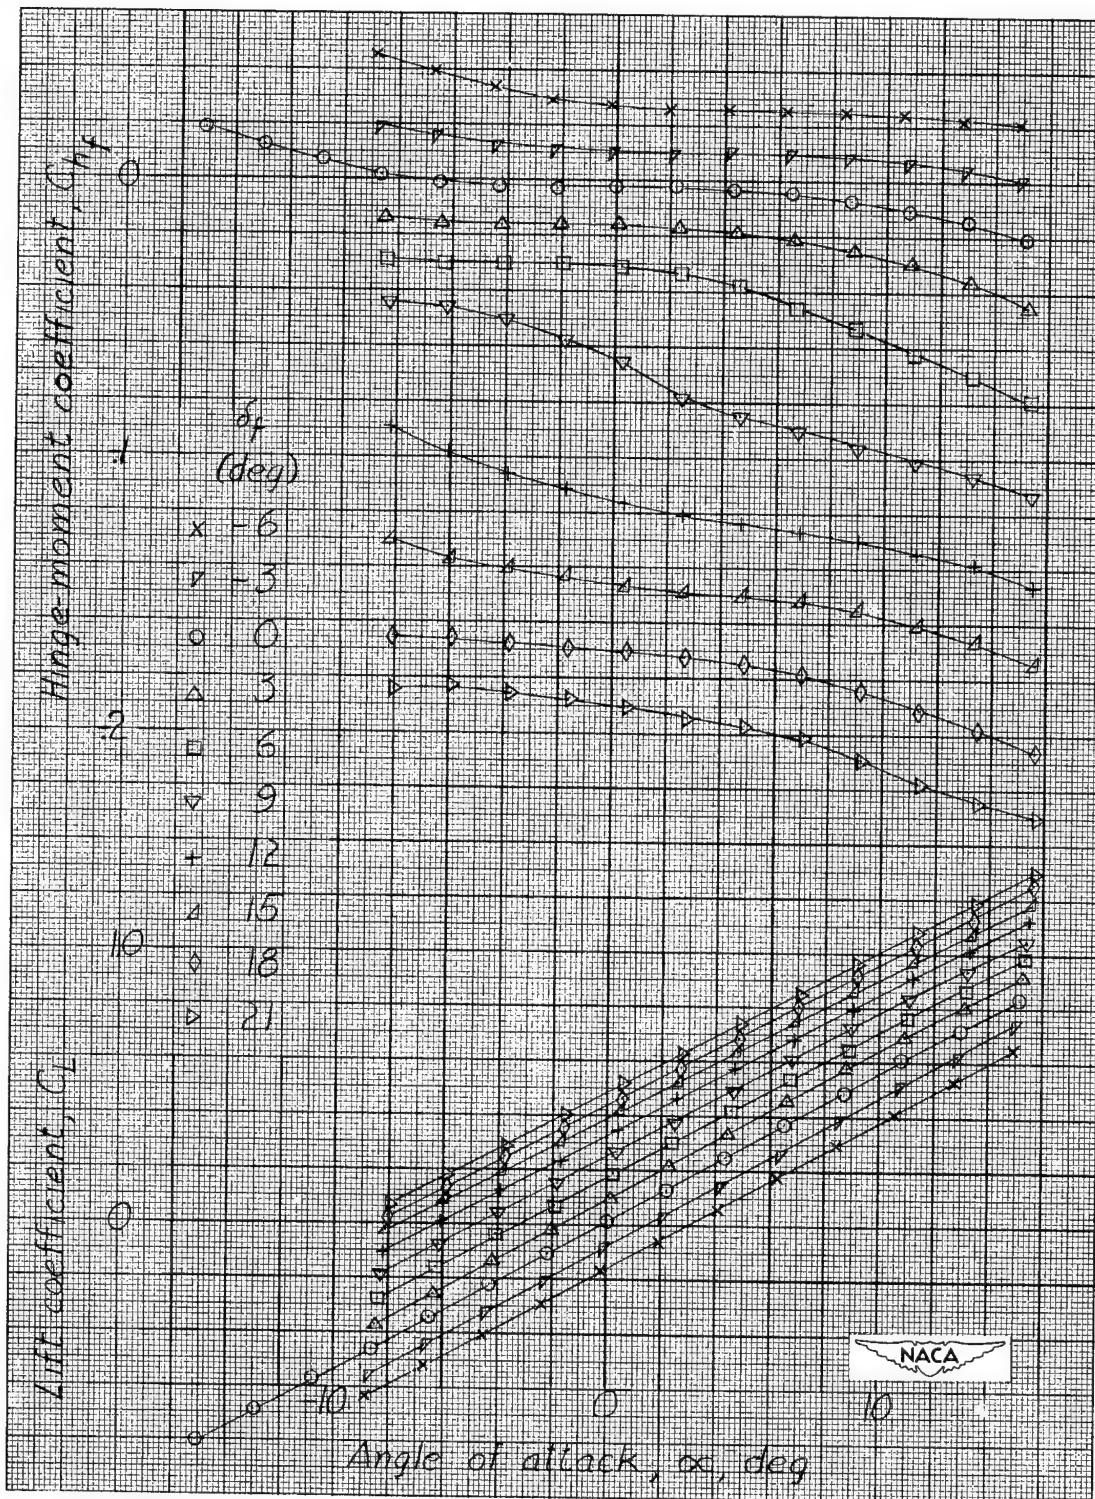 Hinge-moment coefficient, C_hf
0
.1
.2
δf
(deg)
x -6
-3
0
3
6
9
+ 12
15
18
21
Lift coefficient, C_L
1.0
0
-10 0 10
Angle of attack, α, deg
NACA